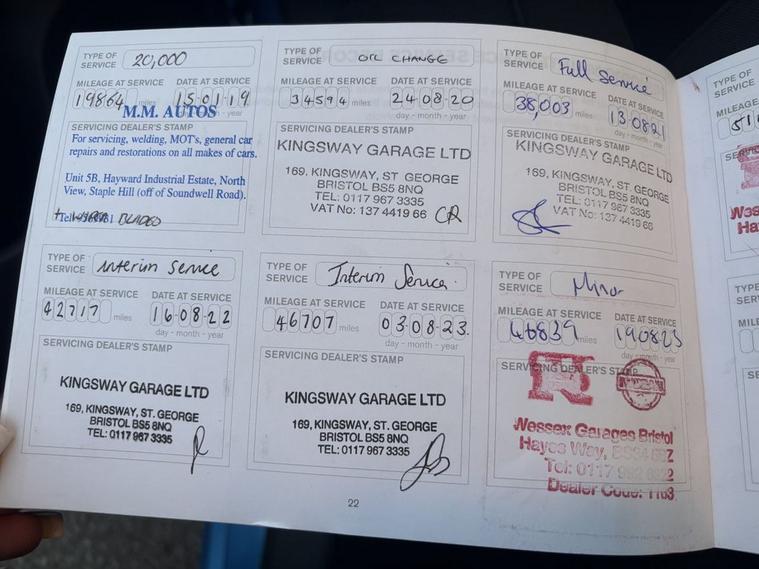 TYPE OF SERVICE 20,000
MILEAGE AT SERVICE DATE AT SERVICE
19864 miles 15 01 19
M.M. AUTOS
SERVICING DEALER'S STAMP
For servicing, welding, MOT's, general car
repairs and restorations on all makes of cars.
Unit 5B, Hayward Industrial Estate, North
View, Staple Hill (off of Soundwell Road).
TYPE OF SERVICE OIL CHANGE
MILEAGE AT SERVICE DATE AT SERVICE
34594 miles 24 08 20
day - month - year
SERVICING DEALER'S STAMP
KINGSWAY GARAGE LTD
169, KINGSWAY, ST. GEORGE
BRISTOL BS5 8NQ
TEL: 0117 967 3335
VAT No: 137 4419 66 CR
TYPE OF SERVICE Full Service
MILEAGE AT SERVICE DATE AT SERVICE
38,003 miles 13 08 21
day - month - year
SERVICING DEALER'S STAMP
KINGSWAY GARAGE LTD
169, KINGSWAY, ST. GEORGE
BRISTOL BS5 8NQ
TEL: 0117 967 3335
VAT No: 137 4419 66
TYPE OF SERVICE Interim Service
MILEAGE AT SERVICE DATE AT SERVICE
42717 miles 16 08 22
day - month - year
SERVICING DEALER'S STAMP
KINGSWAY GARAGE LTD
169, KINGSWAY, ST. GEORGE
BRISTOL BS5 8NQ
TEL: 0117 967 3335
TYPE OF SERVICE Interim Service
MILEAGE AT SERVICE DATE AT SERVICE
46707 miles 03 08 23
day - month - year
SERVICING DEALER'S STAMP
KINGSWAY GARAGE LTD
169, KINGSWAY, ST. GEORGE
BRISTOL BS5 8NQ
TEL: 0117 967 3335
TYPE OF SERVICE Minor
MILEAGE AT SERVICE DATE AT SERVICE
46839 miles 19 08 23
day - month - year
SERVICING DEALER'S STAMP
Wessex Garages Bristol
Hayes Way, BS34
Tel: 0117
Dealer Code: 1163
22
TYPE OF
SERVICE
MILEAGE
TYPE
SERV